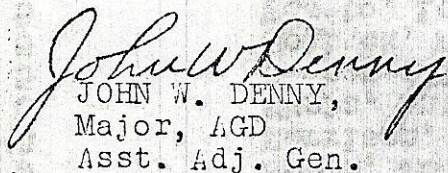 John W Denny
JOHN W. DENNY,
Major, AGD
Asst. Adj. Gen.